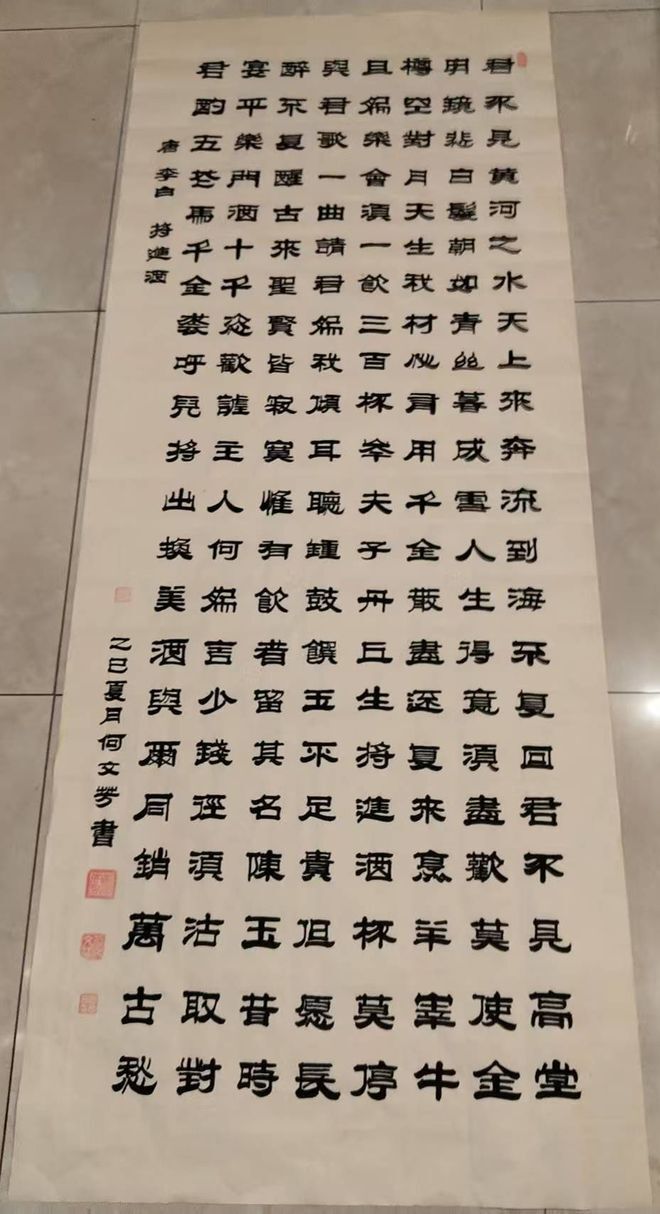 君不見黃河之水天上來奔流到海不复回君不見高堂
明鏡悲白髮朝如青絲暮成雪人生得意須盡歡莫使金
樽空對月天生我材必有用千金散盡還复來烹羊宰牛
且為樂會須一飲三百杯岑夫子丹丘生將進酒杯莫停
與君歌一曲請君為我傾耳聽鐘鼓饌玉不足貴但願長
醉不复醒古來聖賢皆寂寞惟有飲者留其名陳王昔時
宴平樂門酒十千恣歡謔主人何為言少錢徑須沽取對
君酌五花馬千金裘呼兒將出換美酒與爾同銷萬古愁
唐 李白 將進酒
乙巳夏月何文芳書